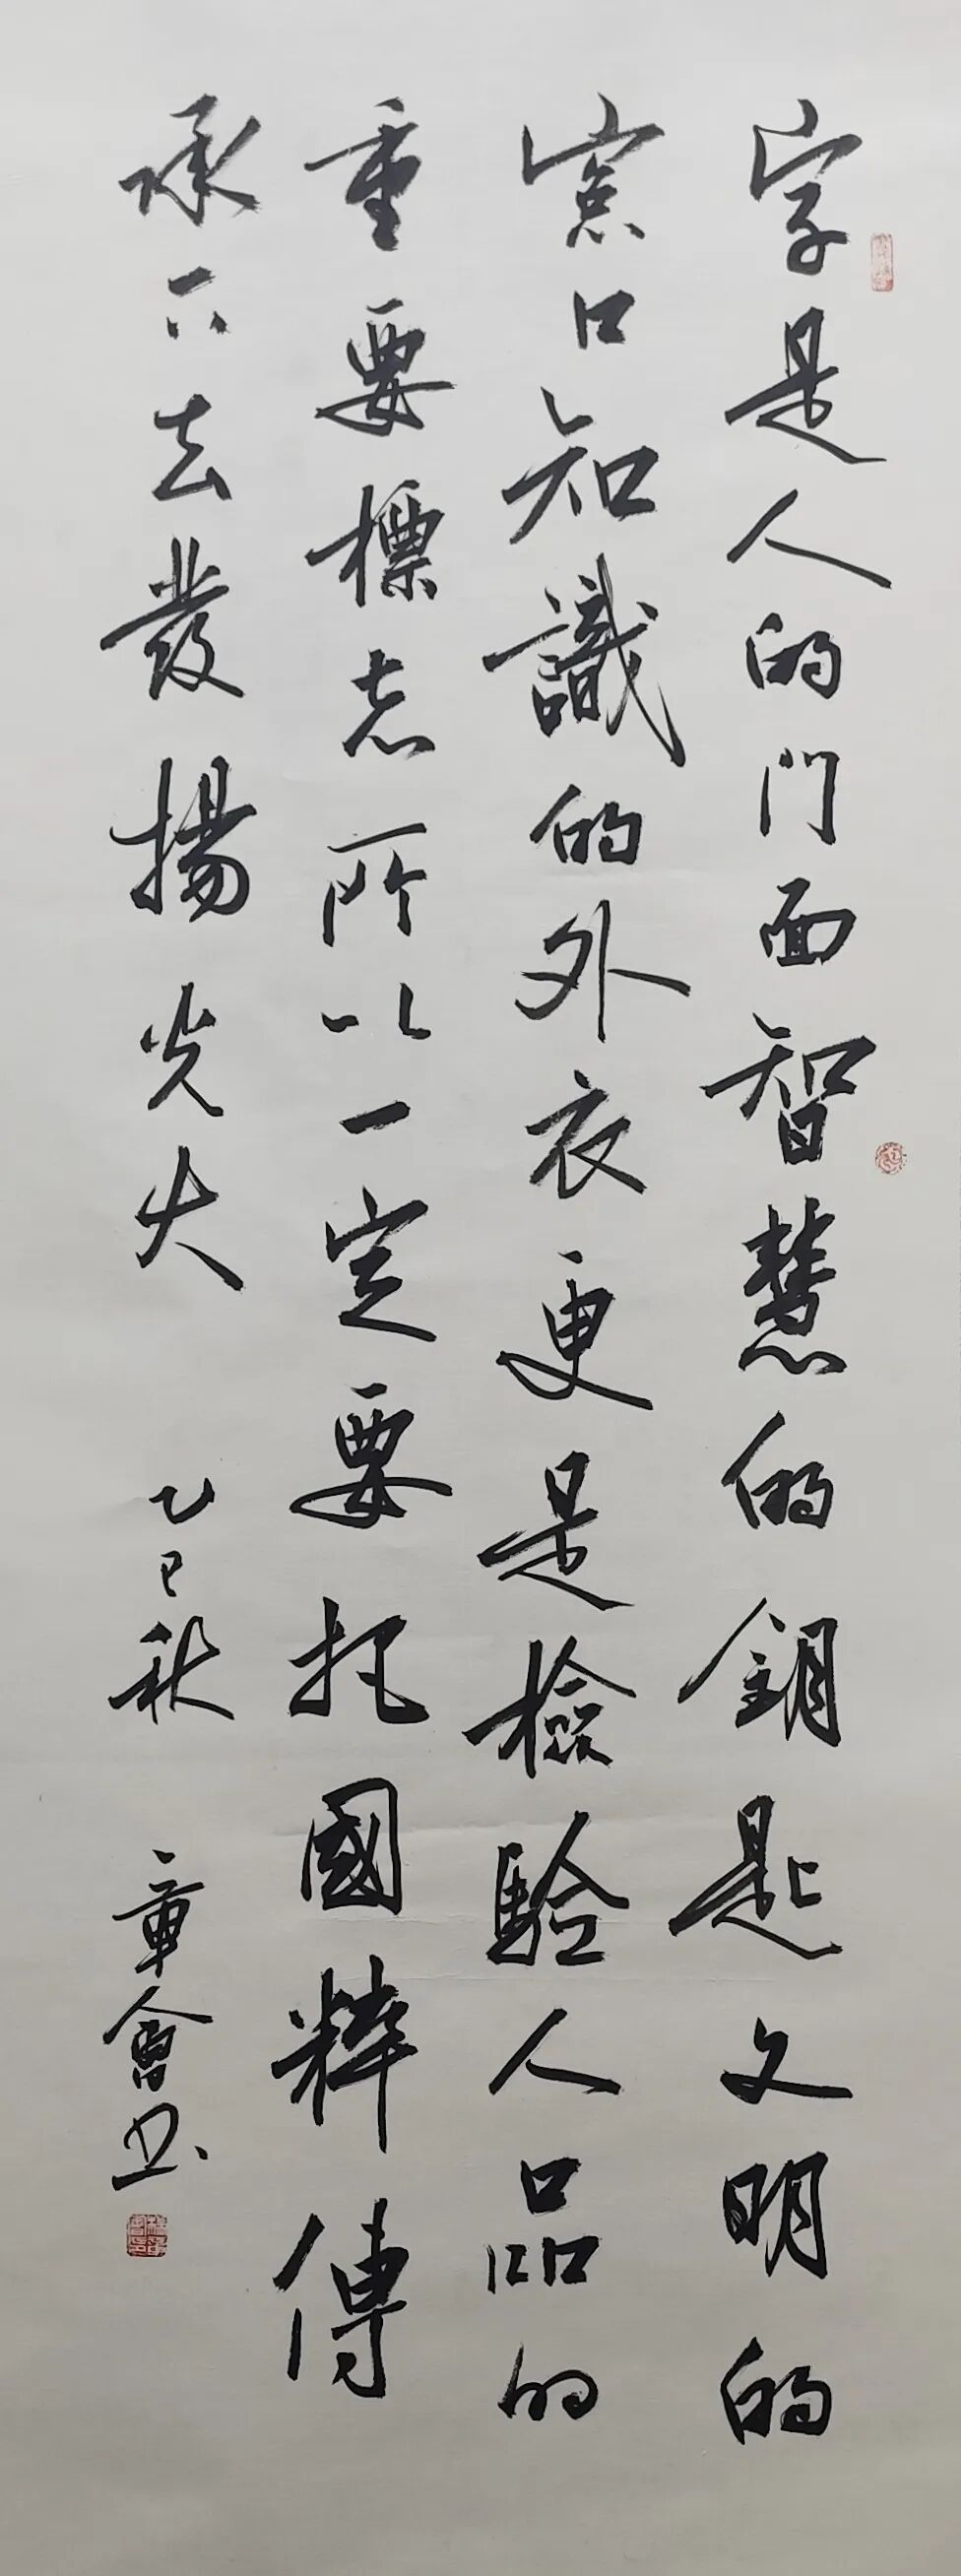 字是人的门面智慧的鑰匙文明的
窓口知識的外衣更是檢驗人品的
重要標志所以一定要把國粹傳
承下去發揚光大
乙巳秋
章會书